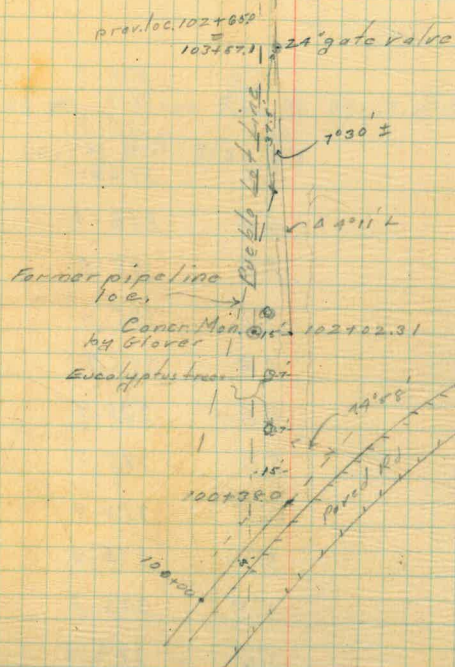 prov. loc. 102+65.0
=
103+67.1
24" gate valve
37.5'
7°30' ±
Pueblo Lot Line
Δ 4°11' L
Former pipe line
loc.
Concr. Mon.
by Glover
15'
102+02.31
Eucalyptus trees
7'
7'
44°58'
15'
100+38.0
Paved Rd
100+00